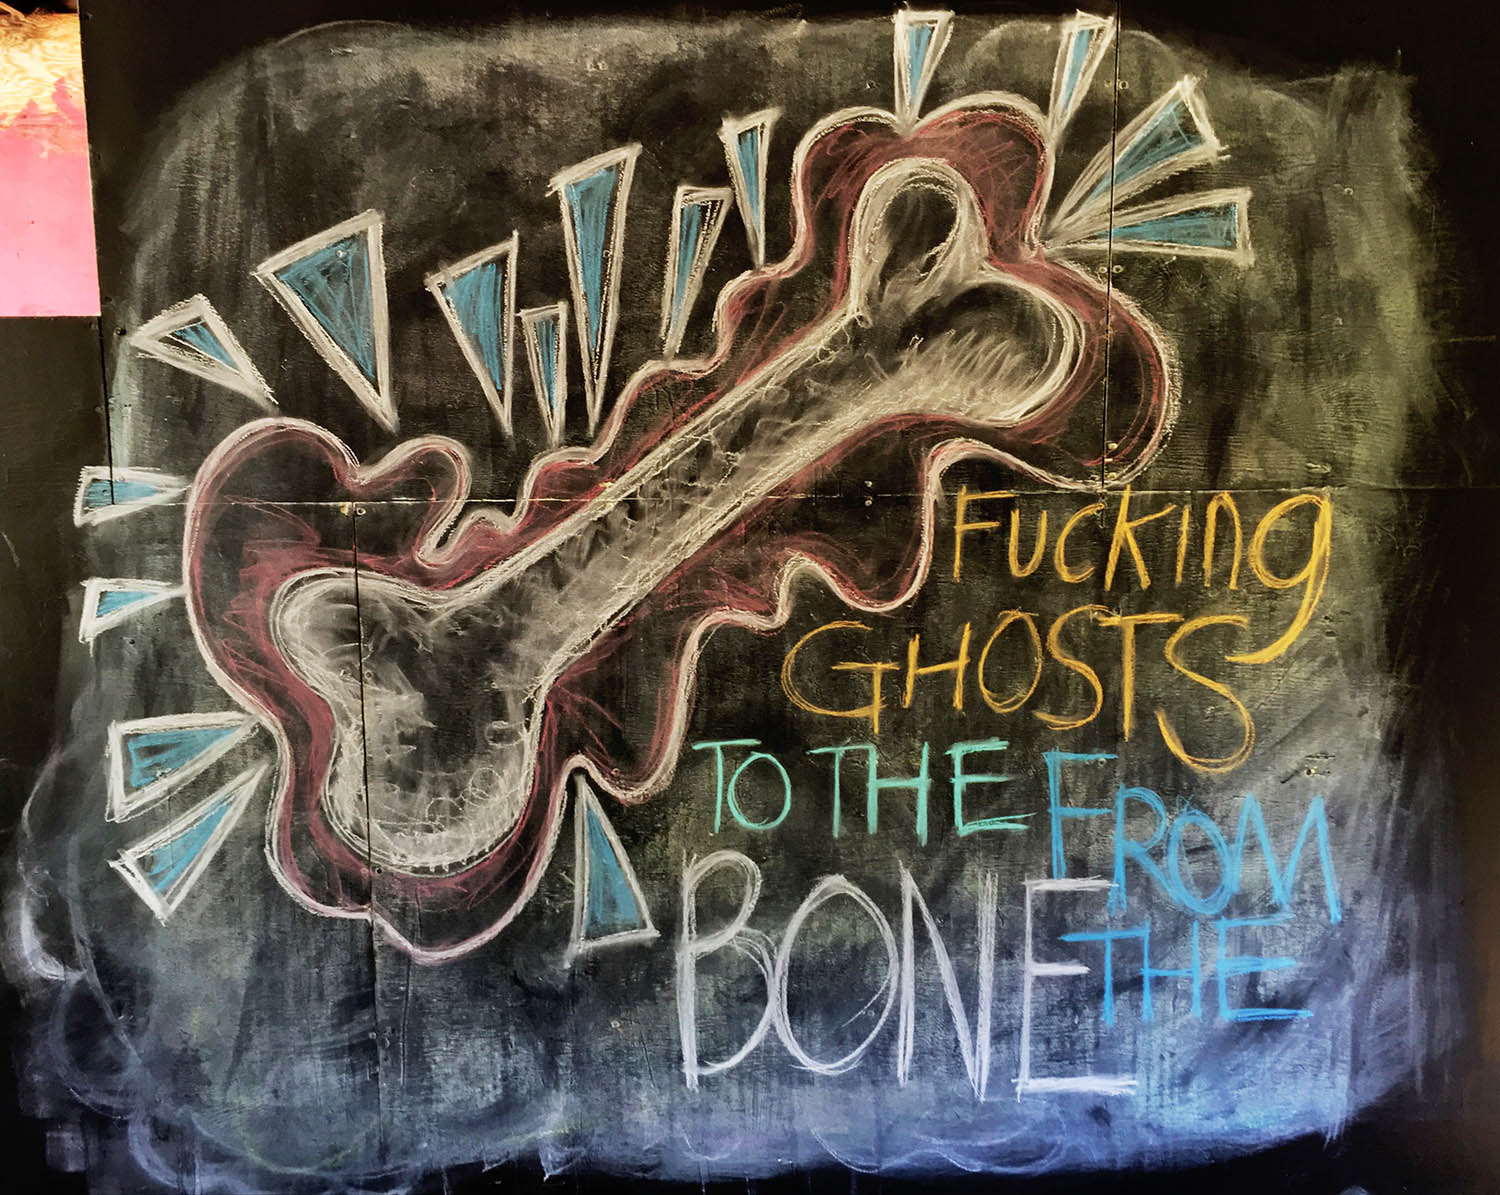 FUCKING
GHOSTS
TO THE FROM
BONE THE